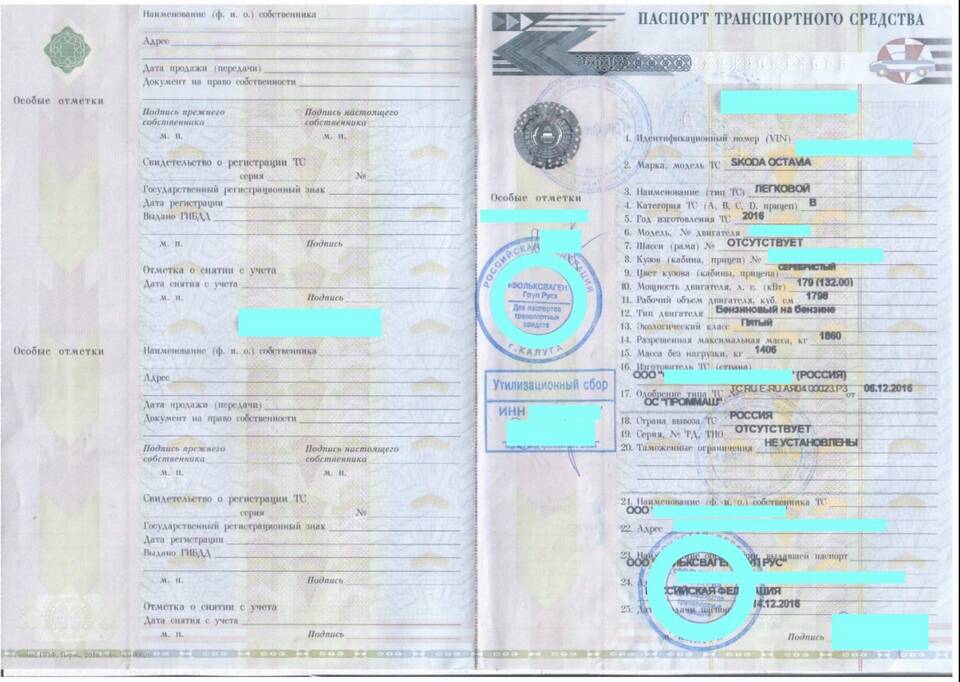 Особые отметки
Наименование (ф. и. о.) собственника
Адрес
Дата продажи (передачи)
Документ на право собственности
Подпись прежнего собственника
Подпись настоящего собственника
м. п.
м. п.
Свидетельство о регистрации ТС
серия №
Государственный регистрационный знак
Дата регистрации
Выдано ГИБДД
м. п. Подпись
Отметка о снятии с учета
Дата снятия с учета
м. п. Подпись
Особые отметки
Наименование (ф. и. о.) собственника
Адрес
Дата продажи (передачи)
Документ на право собственности
Подпись прежнего собственника
Подпись настоящего собственника
м. п.
м. п.
Свидетельство о регистрации ТС
серия №
Государственный регистрационный знак
Дата регистрации
Выдано ГИБДД
м. п. Подпись
Отметка о снятии с учета
Дата снятия с учета
м. п. Подпись
ПАСПОРТ ТРАНСПОРТНОГО СРЕДСТВА
Особые отметки
РОССИЙСКАЯ
«ФОЛЬКСВАГЕН
Груп Рус»
Для паспортов
транспортных
средств
г. КАЛУГА
Утилизационный сбор
ИНН
1. Идентификационный номер (VIN)
2. Марка, модель ТС SKODA OCTAVIA
3. Наименование (тип ТС) ЛЕГКОВОЙ
4. Категория ТС (А, В, С, D, прицеп) B
5. Год изготовления ТС 2016
6. Модель, № двигателя
7. Шасси (рама) № ОТСУТСТВУЕТ
8. Кузов (кабина, прицеп) №
9. Цвет кузова (кабины, прицепа) СЕРЕБРИСТЫЙ
10. Мощность двигателя, л. с. (кВт) 179 (132.00)
11. Рабочий объем двигателя, куб. см 1798
12. Тип двигателя Бензиновый на бензине
13. Экологический класс Пятый
14. Разрешенная максимальная масса, кг 1860
15. Масса без нагрузки, кг 1406
16. Изготовитель ТС (страна)
ООО "(РОССИЯ)
17. Одобрение типа ТС № ТС RU E-RU.АЯ04.00023.Р3 от 06.12.2016
ОС "ПРОММАШ"
18. Страна вывоза ТС РОССИЯ
19. Серия, № ТД, ТПО ОТСУТСТВУЕТ
20. Таможенные ограничения НЕ УСТАНОВЛЕНЫ
21. Наименование (ф. и. о.) собственника ТС
ООО
22. Адрес
23. выдавшей паспорт
ООО РУС"
24.
РОССИЙСКАЯ ФЕДЕРАЦИЯ
25. 14.12.2016
м. п. Подпись